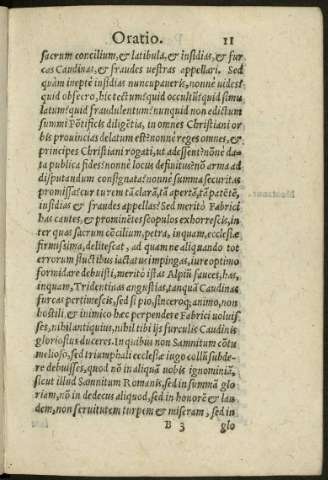 Oratio. 11
sacrum concilium, & latibula, & insidias, & fur
cas Caudinas, & fraudes uestras appellari. Sed
quàm ineptè insidias nuncupaueris, nonne uides?
quid obsecro, hic tectum? quid occultũ? quid simu
latum? quid fraudulentum? nunquid non edictum
summi Põtificis diligẽtia, in omnes Christiani or
bis prouincias delatum est? nonne reges omnes, &
principes Christiani rogati, ut adessent? nõne da-
ta publica fides? nonne locus definitus? nõ arma ad
disputandum consignata? nonne summa securitas
promissa? cur turem tã clarã, tã apertã, tã patẽtẽ,
insidias & fraudes appellas? Sed meritò Fabrici
has cautes, & prominẽtes scopulos exhorrescis, in
ter quas sacrum cõcilium, petra, inquam, ecclesiæ
firmissima, delitescat, ad quam ne aliquando tot
errorum fluctibus iactatus impingas, iure optimo
formidare debuisti, meritò istas Alpiũ fauces, has,
inquam, Tridentinas angustias, tanquã Caudinas
furcas pertimescis, sed si pio, sinceroq; animo, non
hostili, & inimico hæc perpendere Fabrici uoluis
ses, nihil antiquius, nihil tibi ijs furculis Caudinis
gloriosius duceres. In quibus non Samnitum cõtu
melioso, sed triumphali ecclesiæ iugo collũ subde-
re debuisses, quod nõ in aliquã uobis ignominiã,
sicut illud Samnitum Romanis, sed in summã glo
riam, nõ in dedecus aliquod, sed in honorẽ & lau
dem, non seruitutem turpem & miseram, sed in
B 3 glo